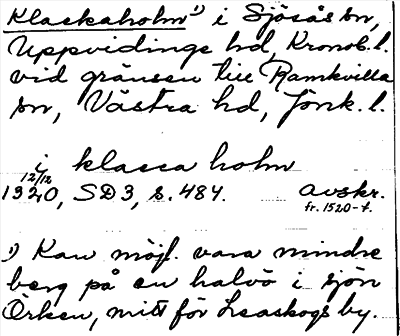 Klackaholm¹⁾ i Sjösås sn,
Uppvidinge hd, Kronob. l.
vid gränsen till Ramkvilla
sn, Västra hd, Jönk. l.
i klacca holm
12/12
1320, SD3, s. 484. avskr.
fr. 1520-t.
¹⁾ Kan möjl. vara mindre
berg på en halvö i sjön
Örken, mitt för Leaskogs by.